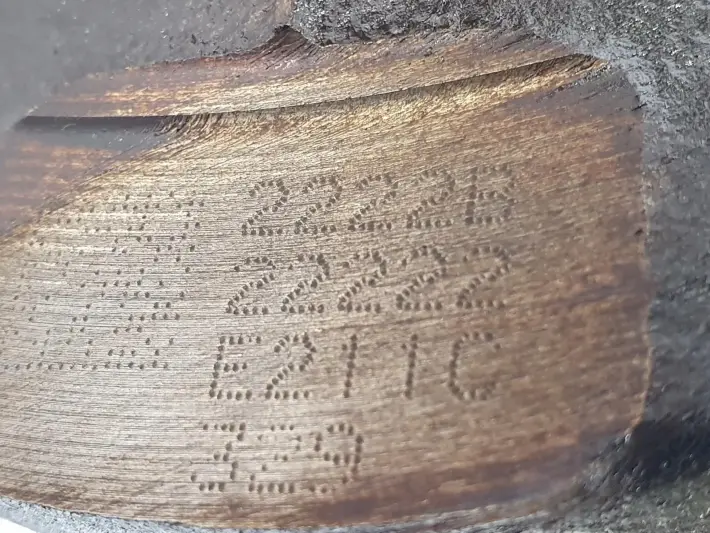 2222B
22222
E211C
J29